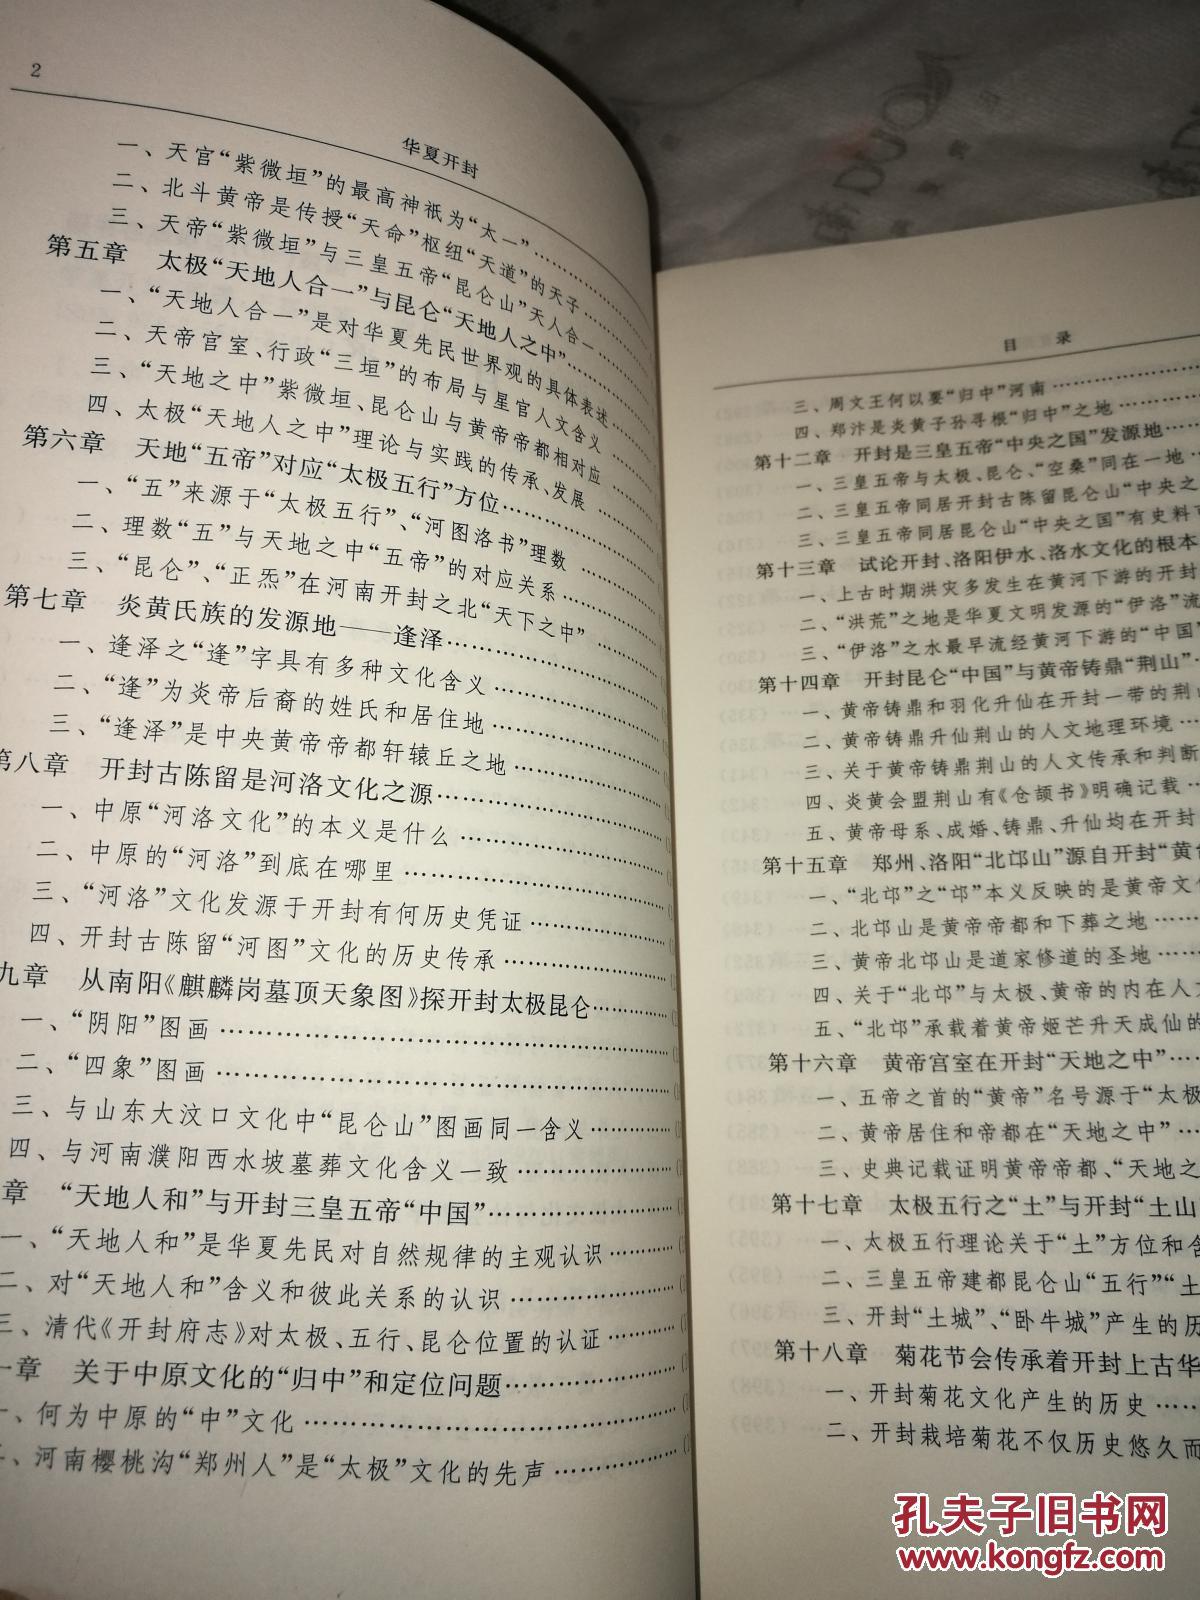 2
华夏开封
一、天宫“紫微垣”的最高神祇为“太一”
二、北斗黄帝是传授“天命”枢纽“天道”的天子
三、天帝“紫微垣”与三皇五帝“昆仑山”天人合一
第五章 太极“天地人合一”与昆仑“天地人之中”
一、“天地人合一”是对华夏先民世界观的具体表述
二、天帝宫室、行政“三垣”的布局与星官人文含义
三、“天地之中”紫微垣、昆仑山与黄帝帝都相对应
四、太极“天地人之中”理论与实践的传承、发展
第六章 天地“五帝”对应“太极五行”方位
一、“五”来源于“太极五行”、“河图洛书”理数
二、理数“五”与天地之中“五帝”的对应关系
三、“昆仑”、“正炁”在河南开封之北“天下之中”
第七章 炎黄氏族的发源地——逢泽
一、逢泽之“逢”字具有多种文化含义
二、“逢”为炎帝后裔的姓氏和居住地
三、“逢泽”是中央黄帝帝都轩辕丘之地
第八章 开封古陈留是河洛文化之源
一、中原“河洛文化”的本义是什么
二、中原的“河洛”到底在哪里
三、“河洛”文化发源于开封有何历史凭证
四、开封古陈留“河图”文化的历史传承
九章 从南阳《麒麟岗墓顶天象图》探开封太极昆仑
一、“阴阳”图画
二、“四象”图画
三、与山东大汶口文化中“昆仑山”图画同一含义
四、与河南濮阳西水坡墓葬文化含义一致
章 “天地人和”与开封三皇五帝“中国”
一、“天地人和”是华夏先民对自然规律的主观认识
二、对“天地人和”含义和彼此关系的认识
三、清代《开封府志》对太极、五行、昆仑位置的认证
一章 关于中原文化的“归中”和定位问题
一、何为中原的“中”文化
二、河南樱桃沟“郑州人”是“太极”文化的先声
目 录
三、周文王何以要“归中”河南
四、郑汴是炎黄子孙寻根“归中”之地
第十二章 开封是三皇五帝“中央之国”发源地
一、三皇五帝与太极、昆仑、“空桑”同在一地
二、三皇五帝同居开封古陈留昆仑山“中央之
三、三皇五帝同居昆仑山“中央之国”有史料
第十三章 试论开封、洛阳伊水、洛水文化的根本
一、上古时期洪灾多发生在黄河下游的开封
二、“洪荒”之地是华夏文明发源的“伊洛”流
三、“伊洛”之水最早流经黄河下游的“中国”
第十四章 开封昆仑“中国”与黄帝铸鼎“荆山”
一、黄帝铸鼎和羽化升仙在开封一带的荆山
二、黄帝铸鼎升仙荆山的人文地理环境
三、关于黄帝铸鼎荆山的人文传承和判断
四、炎黄会盟荆山有《仓颉书》明确记载
五、黄帝母系、成婚、铸鼎、升仙均在开封
第十五章 郑州、洛阳“北邙山”源自开封“黄
一、“北邙”之“邙”本义反映的是黄帝文
二、北邙山是黄帝帝都和下葬之地
三、黄帝北邙山是道家修道的圣地
四、关于“北邙”与太极、黄帝的内在人
五、“北邙”承载着黄帝姬芒升天成仙的
第十六章 黄帝宫室在开封“天地之中”
一、五帝之首的“黄帝”名号源于“太极
二、黄帝居住和帝都在“天地之中”
三、史典记载证明黄帝帝都、“天地之
第十七章 太极五行之“土”与开封“土山
一、太极五行理论关于“土”方位和含
二、三皇五帝建都昆仑山“五行”“土
三、开封“土城”、“卧牛城”产生的历
第十八章 菊花节会传承着开封上古华
一、开封菊花文化产生的历史
二、开封栽培菊花不仅历史悠久而
孔夫子旧书网
www.kongfz.com